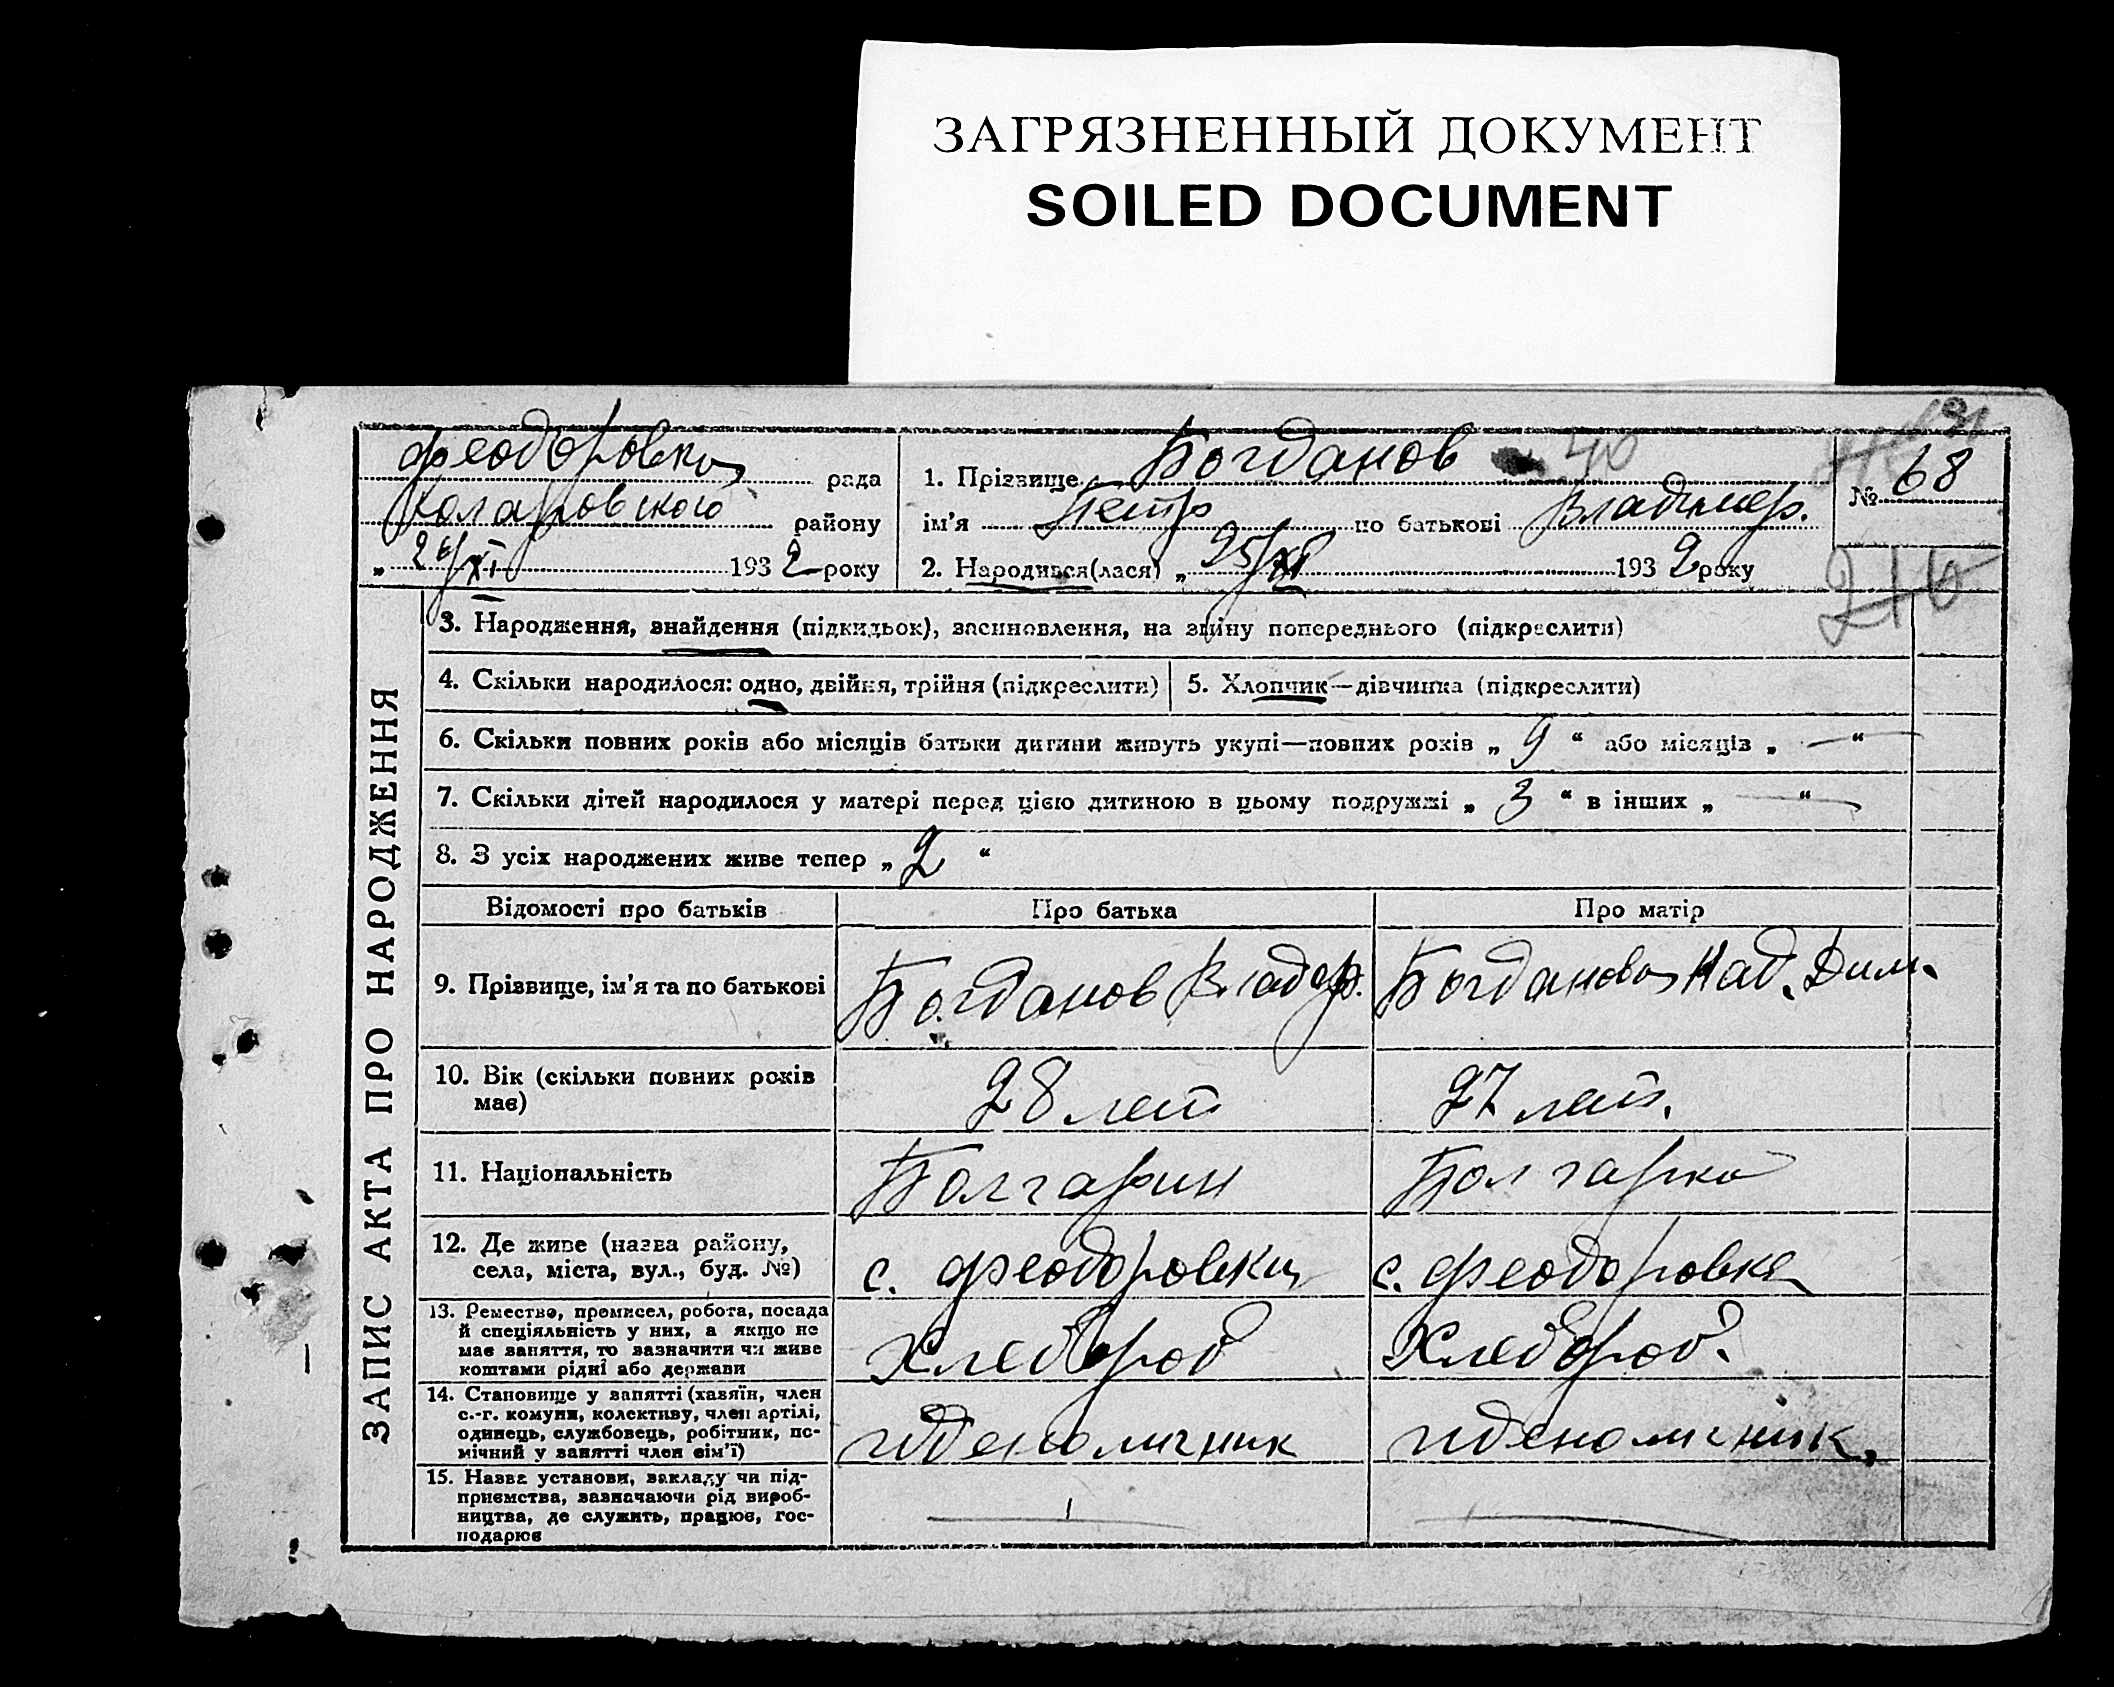 ЗАГРЯЗНЕННЫЙ ДОКУМЕНТ
SOILED DOCUMENT
Феодоровка рада
Коларовского району
„ 26/XI 1932 року
1. Прізвище Богданов 40
ім'я Петр по батькові Владимер.
2. Народився(лася) „ 25/XI 1932 року
№ 68
216
ЗАПИС АКТА ПРО НАРОДЖЕННЯ
3. Народження, знайдення (підкидьок), засиновлення, на зміну попереднього (підкреслити)
4. Скільки народилося: одно, двійня, трійня (підкреслити)
5. Хлопчик—дівчинка (підкреслити)
6. Скільки повних років або місяців батьки дитини живуть укупі—повних років „ 9 “ або місяців „ — “
7. Скільки дітей народилося у матері перед цією дитиною в цьому подружжі „ 3 “ в інших „ — “
8. З усіх народжених живе тепер „ 2 “
Відомості про батьків Про батька Про матір
9. Прізвище, ім'я та по батькові Богданов Богданова Над. Дим.
10. Вік (скільки повних років має) 28 лет 27 лет.
11. Національність Болгарин Болгарка
12. Де живе (назва району, села, міста, вул., буд. №) с. Феодоровки с. Феодоровка
13. Ремество, промисел, робота, посада й спеціяльність у них, а якщо не має заняття, то зазначити чи живе коштами рідні або держави Хлебороб Хлебороб.
14. Становище у занятті (хазяїн, член с.-г. комуни, колективу, член артілі, одинець, службовець, робітник, помічний у занятті член сім'ї)
15. Назва установи, закладу чи підприємства, зазначаючи рід виробництва, де служить, працює, господарює — —